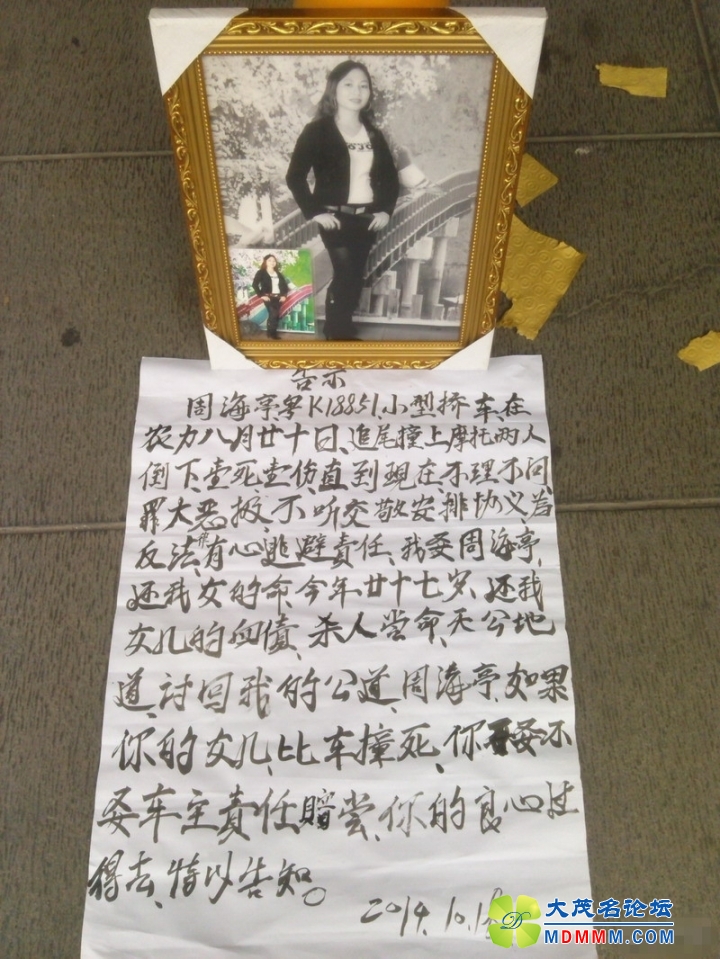 告示
周海亭、粤K18851、小型挢车、在
农力八月廿十日、追尾撞上摩托两人
倒下、壹死壹伤直到現在、不理不问、
罪大恶极、不听交敬安排协义、为
反法、有心逃避责任、我要周海亭、
还我女的命、今年廿十七岁、还我
女儿的血债、杀人尝命、天公地
道、讨回我的公道、周海亭、如果
你的女儿、比车撞死、你要不
要车主責任、賠尝、你的良心过
得去、特以告知。
2014.10.1
大茂名论坛
MDMMM.COM